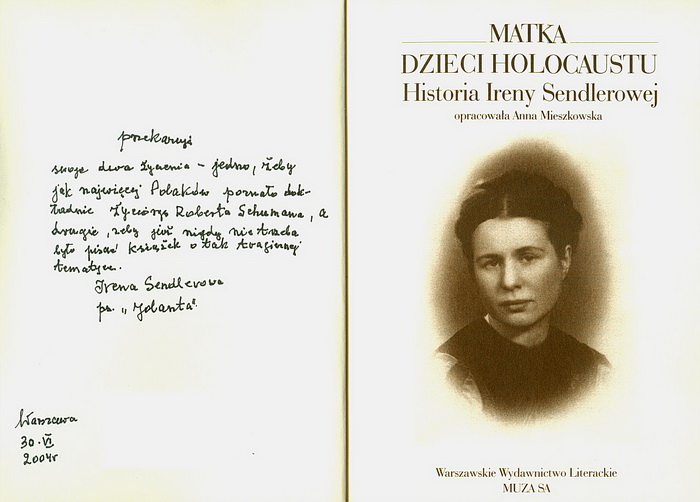 przekazuję
swoje dwa życzenia – jedno, żeby
jak najwięcej Polaków poznało dok-
ładnie życiorys Roberta Schumana, a
drugie, żeby już nigdy nie trzeba
było pisać książek o tak tragicznej
tematyce.
Irena Sendlerowa
ps. "Jolanta".
Warszawa
30.VI
2004r
MATKA
DZIECI HOLOCAUSTU
Historia Ireny Sendlerowej
opracowała Anna Mieszkowska
Warszawskie Wydawnictwo Literackie
MUZA SA